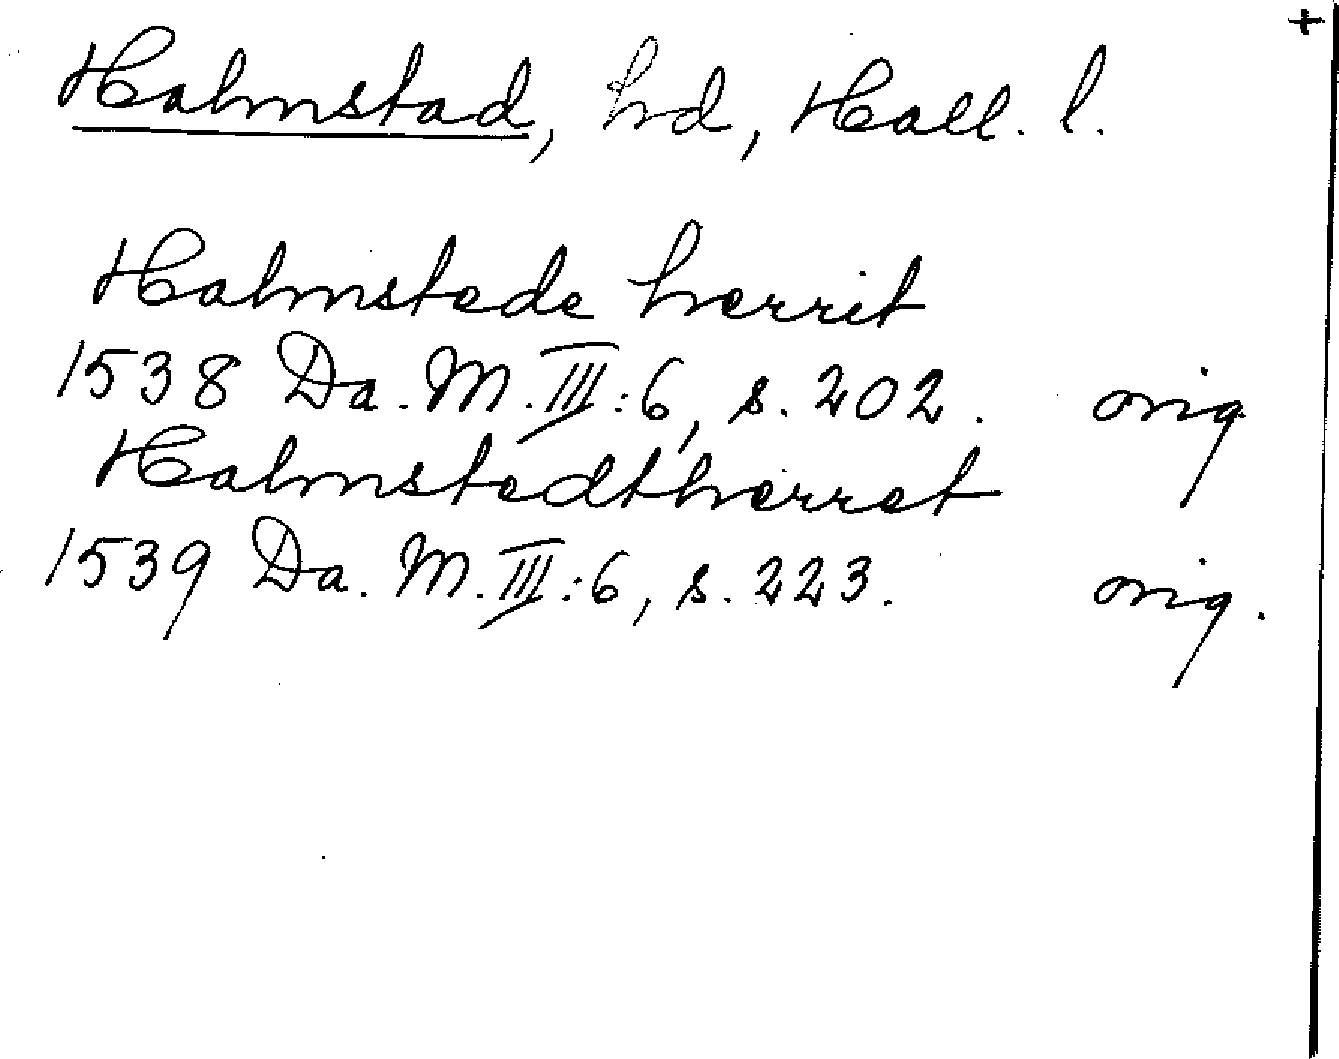 +
Halmstad, hd, Hall. l.
Halmstede herrit
1538 Da. M. III:6, s. 202. orig
Halmstedtherret
1539 Da. M. III:6, s. 223. orig.